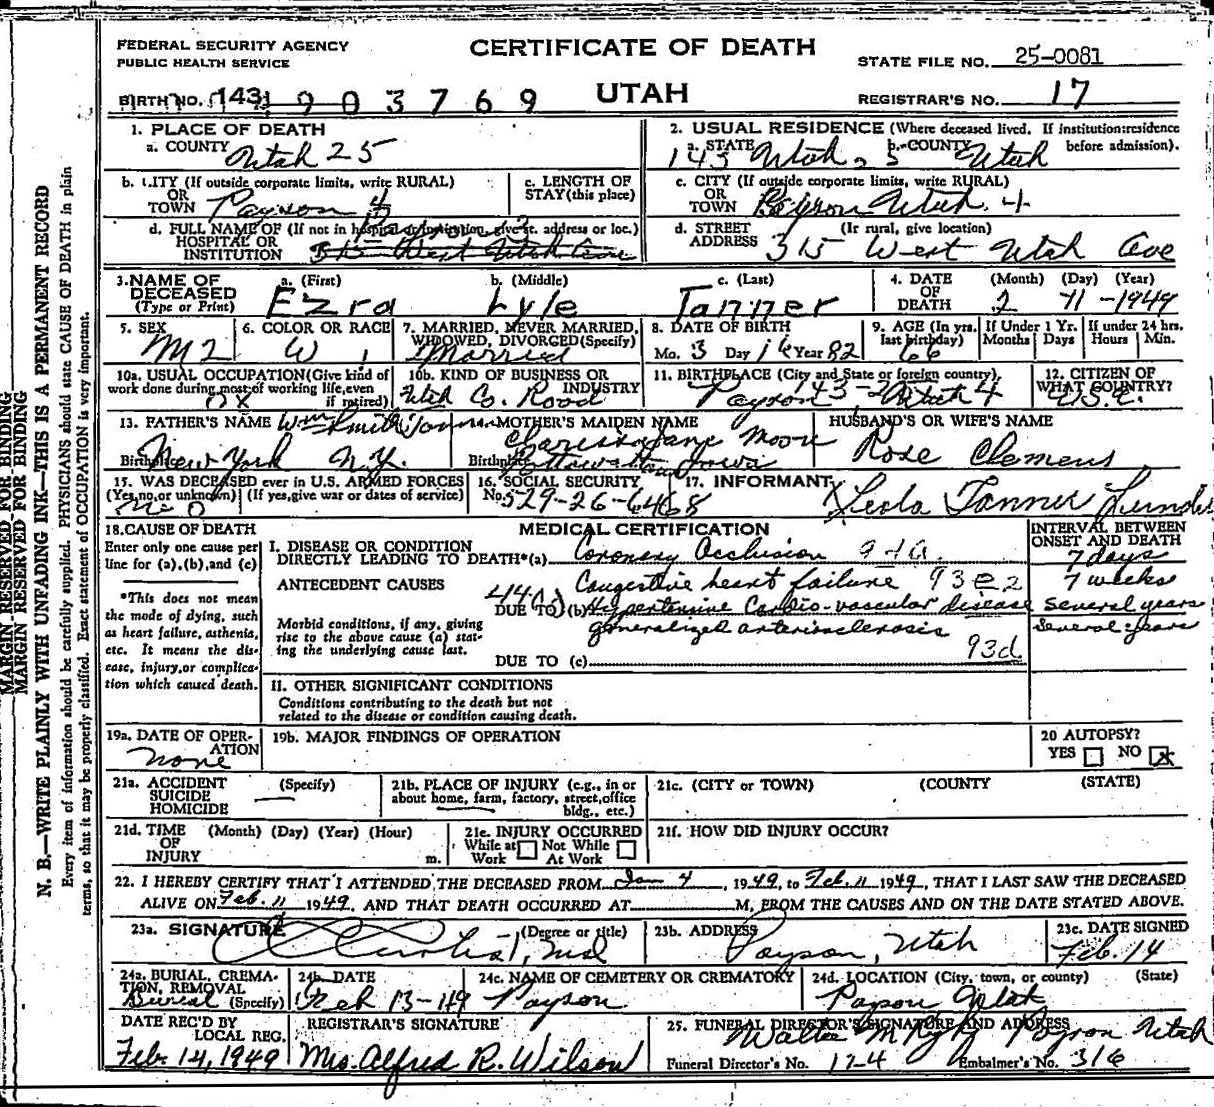 FEDERAL SECURITY AGENCY
PUBLIC HEALTH SERVICE
CERTIFICATE OF DEATH
UTAH
STATE FILE NO. 25-0081
BIRTH NO. 143 903769
REGISTRAR'S NO. 17
1. PLACE OF DEATH
a. COUNTY Utah 25
2. USUAL RESIDENCE (Where deceased lived. If institution: residence before admission).
a. STATE 143 Utah b. COUNTY Utah
b. CITY (If outside corporate limits, write RURAL)
OR TOWN Payson 4
c. LENGTH OF STAY (this place)
c. CITY (If outside corporate limits, write RURAL)
OR TOWN Payson Utah. 4
d. FULL NAME OF (If not in hospital or institution, give st. address or loc.)
HOSPITAL OR INSTITUTION 315 West Utah Ave
d. STREET ADDRESS (If rural, give location)
315 West Utah Ave
3. NAME OF DECEASED (Type or Print)
a. (First) Ezra
b. (Middle) Lyle
c. (Last) Tanner
4. DATE OF DEATH (Month) (Day) (Year)
2 11-1949
5. SEX M 2
6. COLOR OR RACE W 1
7. MARRIED, NEVER MARRIED, WIDOWED, DIVORCED (Specify) Married
8. DATE OF BIRTH
Mo. 3 Day 16 Year 82
9. AGE (In yrs. last birthday) 66
If Under 1 Yr. Months Days
If under 24 hrs. Hours Min.
10a. USUAL OCCUPATION (Give kind of work done during most of working life, even if retired)
10b. KIND OF BUSINESS OR INDUSTRY
Utah Co. Road
11. BIRTHPLACE (City and State or foreign country).
Payson 143-2 Utah 4
12. CITIZEN OF WHAT COUNTRY?
13. FATHER'S NAME Wm Smith Tanner
Birthplace New York N.Y.
MOTHER'S MAIDEN NAME
Clarissa Jane Moore
Birthplace Pottawattamie Iowa
HUSBAND'S OR WIFE'S NAME
Rose Clemens
15. WAS DECEASED ever in U.S. ARMED FORCES
(Yes, no, or unknown) (If yes, give war or dates of service)
No
16. SOCIAL SECURITY
No. 529-26-6468
17. INFORMANT
Leola Tanner
18. CAUSE OF DEATH
Enter only one cause per line for (a), (b), and (c)
*This does not mean the mode of dying, such as heart failure, asthenia, etc. It means the disease, injury, or complication which caused death.
MEDICAL CERTIFICATION
INTERVAL BETWEEN ONSET AND DEATH
I. DISEASE OR CONDITION
DIRECTLY LEADING TO DEATH*(a) Coronary Occlusion 94a 7 days
ANTECEDENT CAUSES Congestive heart failure 93e2 7 weeks
DUE TO (b) Hypertensive Cardio-vascular disease several years
Morbid conditions, if any, giving rise to the above cause (a) stating the underlying cause last.
generalized arteriosclerosis several years
DUE TO (c) 93d
II. OTHER SIGNIFICANT CONDITIONS
Conditions contributing to the death but not related to the disease or condition causing death.
19a. DATE OF OPERATION
none
19b. MAJOR FINDINGS OF OPERATION
20 AUTOPSY?
YES NO X
21a. ACCIDENT SUICIDE HOMICIDE (Specify)
21b. PLACE OF INJURY (e.g., in or about home, farm, factory, street, office bldg., etc.)
21c. (CITY or TOWN) (COUNTY) (STATE)
21d. TIME OF INJURY (Month) (Day) (Year) (Hour) m.
21e. INJURY OCCURRED
While at Work Not While At Work
21f. HOW DID INJURY OCCUR?
22. I HEREBY CERTIFY THAT I ATTENDED THE DECEASED FROM Jan 4, 1949, to Feb. 11 1949, THAT I LAST SAW THE DECEASED
ALIVE ON Feb. 11 1949, AND THAT DEATH OCCURRED AT M, FROM THE CAUSES AND ON THE DATE STATED ABOVE.
23a. SIGNATURE (Degree or title)
Curtis, md
23b. ADDRESS
Payson, Utah
23c. DATE SIGNED
Feb. 14
24a. BURIAL, CREMATION, REMOVAL (Specify)
Burial
24b. DATE
Feb 13-49
24c. NAME OF CEMETERY OR CREMATORY
Payson
24d. LOCATION (City, town, or county) (State)
Payson Utah
DATE REC'D BY LOCAL REG.
Feb. 14, 1949
REGISTRAR'S SIGNATURE
Mrs. Alfred R. Wilson
25. FUNERAL DIRECTOR'S SIGNATURE AND ADDRESS
Walter Payson Utah
Funeral Director's No. 17-4
Embalmer's No. 316
MARGIN RESERVED FOR BINDING
MARGIN RESERVED FOR BINDING
N. B.—WRITE PLAINLY WITH UNFADING INK—THIS IS A PERMANENT RECORD
Every item of information should be carefully supplied. PHYSICIANS should state CAUSE OF DEATH in plain
terms, so that it may be properly classified. Exact statement of OCCUPATION is very important.